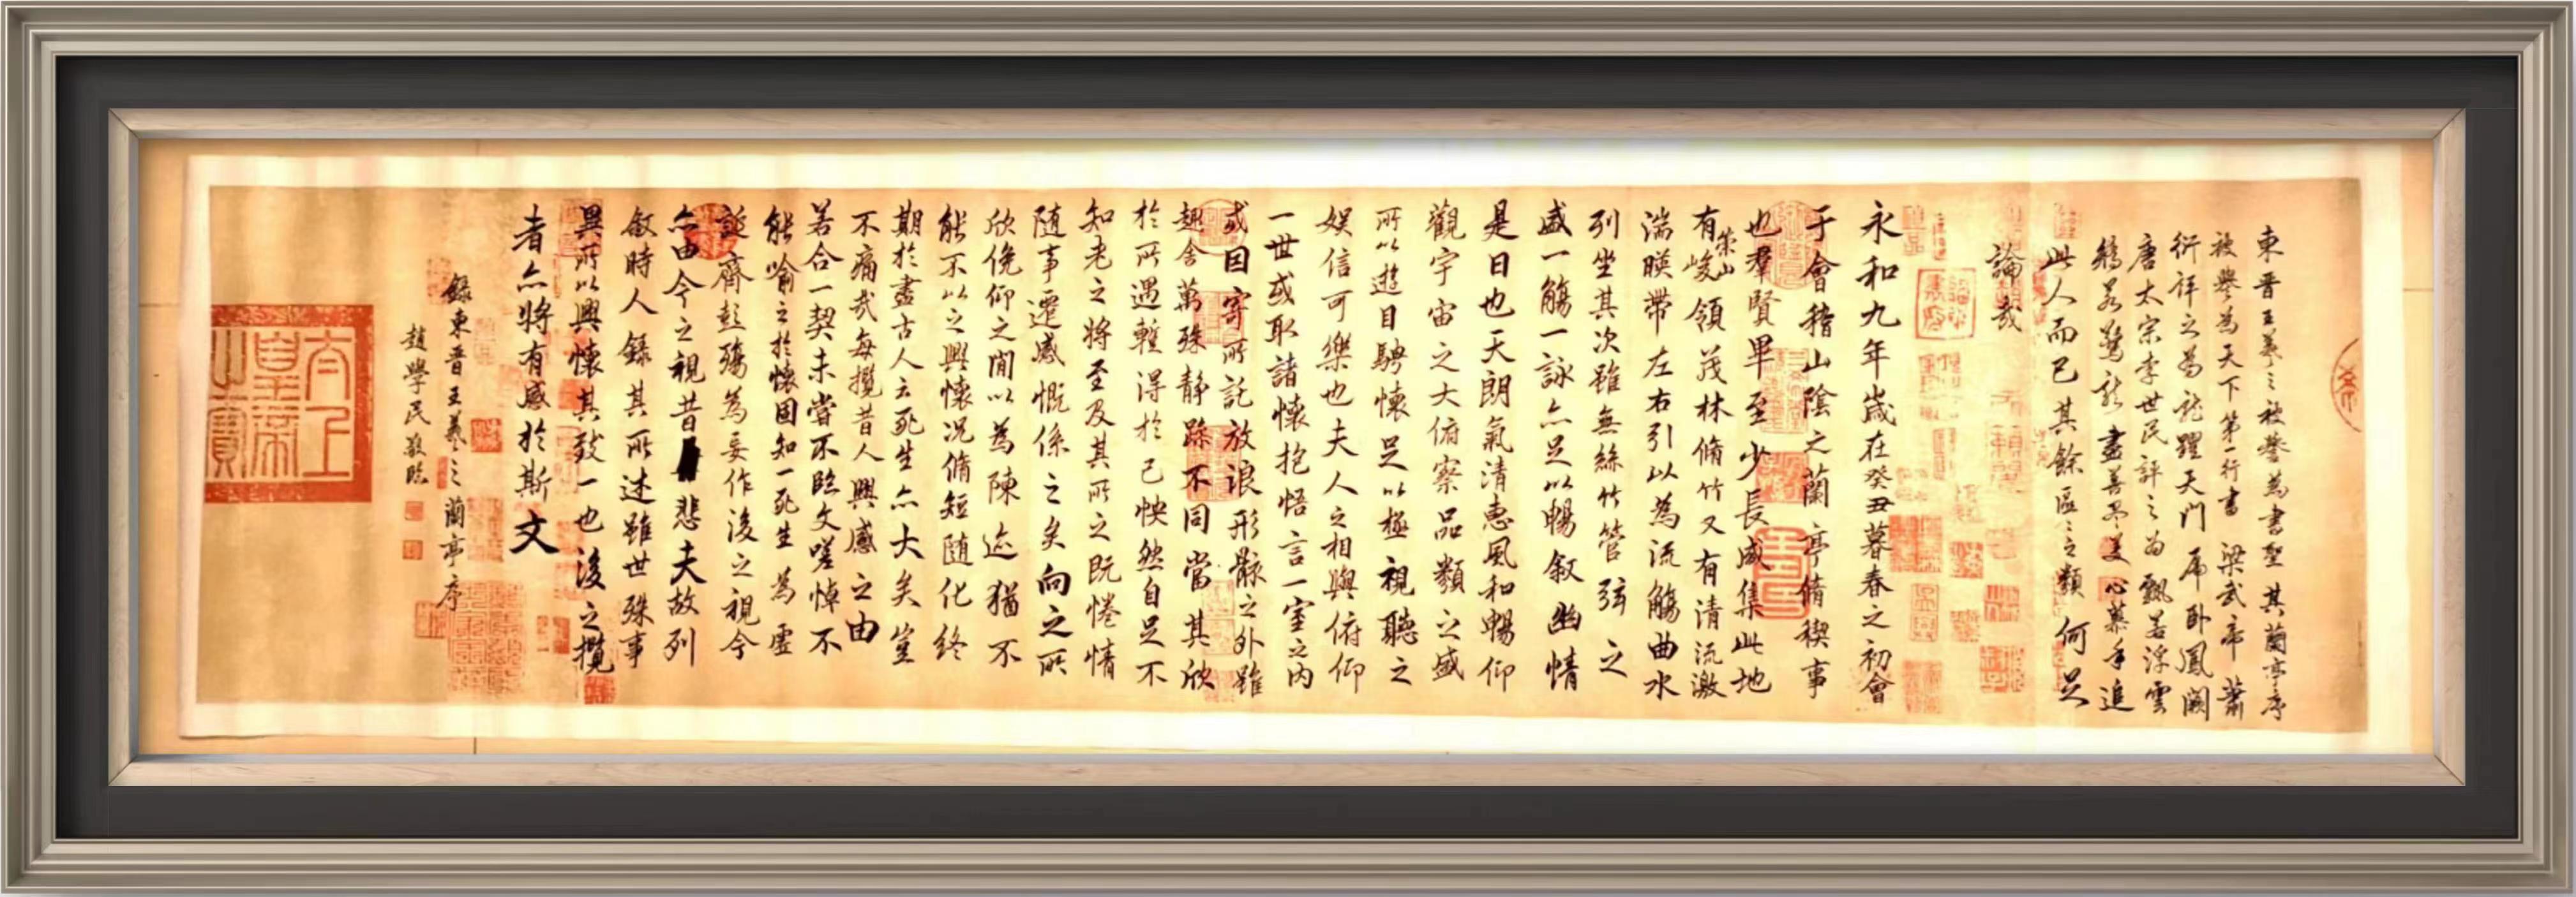 東晋王羲之被譽為書聖其蘭亭序
被譽為天下第一行書梁武帝蕭
衍評之為龍躍天門虎卧鳳闕
唐太宗李世民評之為飄若浮雲
矯若驚龍盡善盡美心慕手追
此人而已其餘區之之類何足
論哉
永和九年歲在癸丑暮春之初會
于會稽山陰之蘭亭脩稧事
也羣賢畢至少長咸集此地
有崇山峻領茂林脩竹又有清流激
湍暎帶左右引以為流觴曲水
列坐其次雖無絲竹管弦之
盛一觴一詠亦足以暢敘幽情
是日也天朗氣清惠風和暢仰
觀宇宙之大俯察品類之盛
所以遊目騁懷足以極視聽之
娛信可樂也夫人之相與俯仰
一世或取諸懷抱悟言一室之內
或因寄所託放浪形骸之外雖
趣舍萬殊靜躁不同當其欣
於所遇蹔得於己怏然自足不
知老之將至及其所之既惓情
隨事遷感慨係之矣向之所
欣俛仰之閒以為陳迹猶不
能不以之興懷況脩短隨化終
期於盡古人云死生亦大矣豈
不痛哉每攬昔人興感之由
若合一契未嘗不臨文嗟悼不
能喻之於懷固知一死生為虛
誕齊彭殤為妄作後之視今
亦由今之視昔悲夫故列
敘時人錄其所述雖世殊事
異所以興懷其致一也後之攬
者亦將有感於斯文
錄東晋王羲之蘭亭序
趙學民敬臨
太上
皇帝
之寶